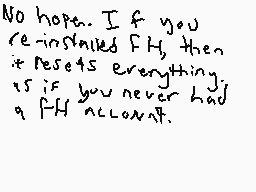 No hope. If you
re-installed FH, then
it resets everything.
as if you never had
a FH account.